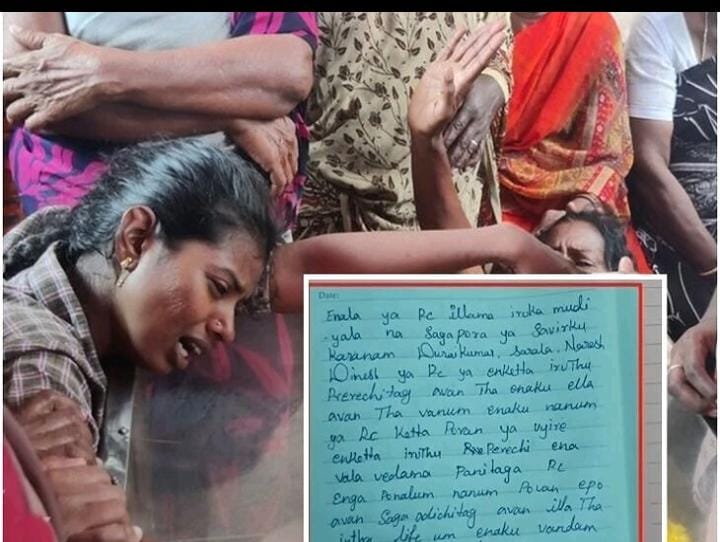 Date:
Enala ya Rc illama iroka mudi
yala na Sagapora ya Savirku
Karanam Duraikumar, Sarala, Naresh
Dinesh ya Rc ya enketta iruThu
Prerechitag avan Tha enaku ella
avan Tha vanum enaku nanum
ya Rc Ketta Povan ya uyire
enketta iruThu Perechi ena
vala vedama Panitaga Rc
Enga Ponalum nanum Povan epo
avan Saga adichitag avan illa Tha
intha life um enaku vandam